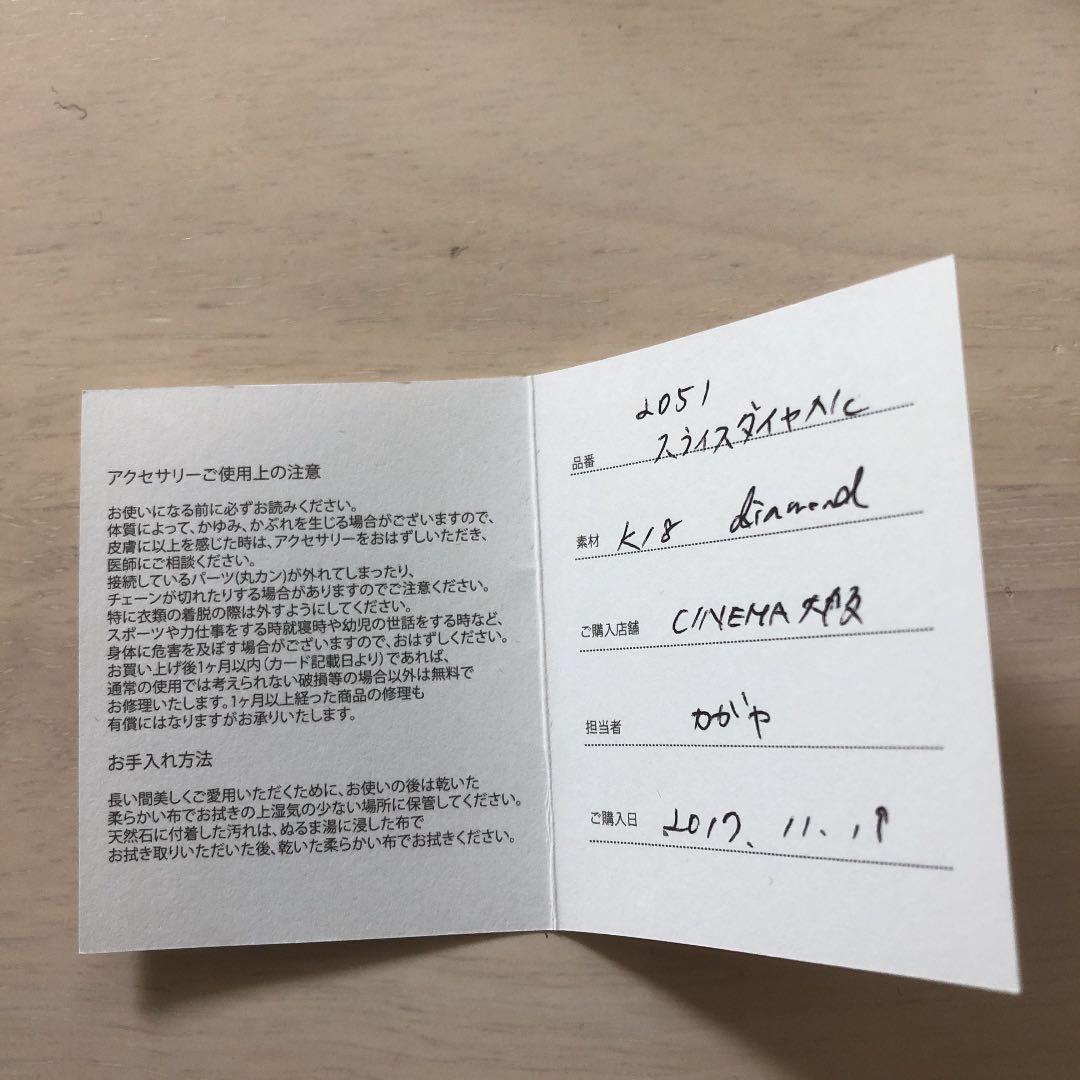 アクセサリーご使用上の注意
お使いになる前に必ずお読みください。
体質によって、かゆみ、かぶれを生じる場合がございますので、
皮膚に以上を感じた時は、アクセサリーをおはずしいただき、
医師にご相談ください。
接続しているパーツ(丸カン)が外れてしまったり、
チェーンが切れたりする場合がありますのでご注意ください。
特に衣類の着脱の際は外すようにしてください。
スポーツや力仕事をする時就寝時や幼児の世話をする時など、
身体に危害を及ぼす場合がございますので、おはずしください。
お買い上げ後1ヶ月以内(カード記載日より)であれば、
通常の使用では考えられない破損等の場合以外は無料で
お修理いたします。1ヶ月以上経った商品の修理も
有償にはなりますがお承りいたします。
お手入れ方法
長い間美しくご愛用いただくために、お使いの後は乾いた
柔らかい布でお拭きの上湿気の少ない場所に保管してください。
天然石に付着した汚れは、ぬるま湯に浸した布で
お拭き取りいただいた後、乾いた柔らかい布でお拭きください。
2051
品番 スライスダイヤ
素材 K18 diamond
ご購入店舗 CINEMA 大阪
担当者 かがや
ご購入日 2017. 11.